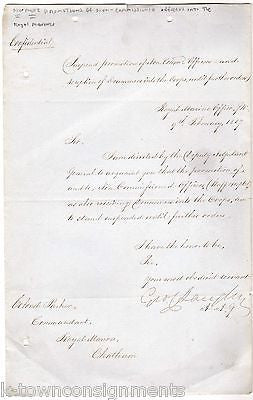 promotions of non-commissioned officers into the
Royal Marines
Confidential
Suspend promotion of Non Comm'd Officers and
reception of Drummers into the Corps, until further orders
Royal Marine Office, W.
9th February, 1847
Sir,
I am directed by the Deputy Adjutant
General to acquaint you that the promotion of
Non Commissioned Officers
as also receiving Drummers into the Corps, are
to stand suspended until further orders.
I have the honor to be
Sir,
Your most obedient servant
A.A.G.
Colonel Parker,
Commandant,
Royal Marines,
Chatham
k-townconsignments.com